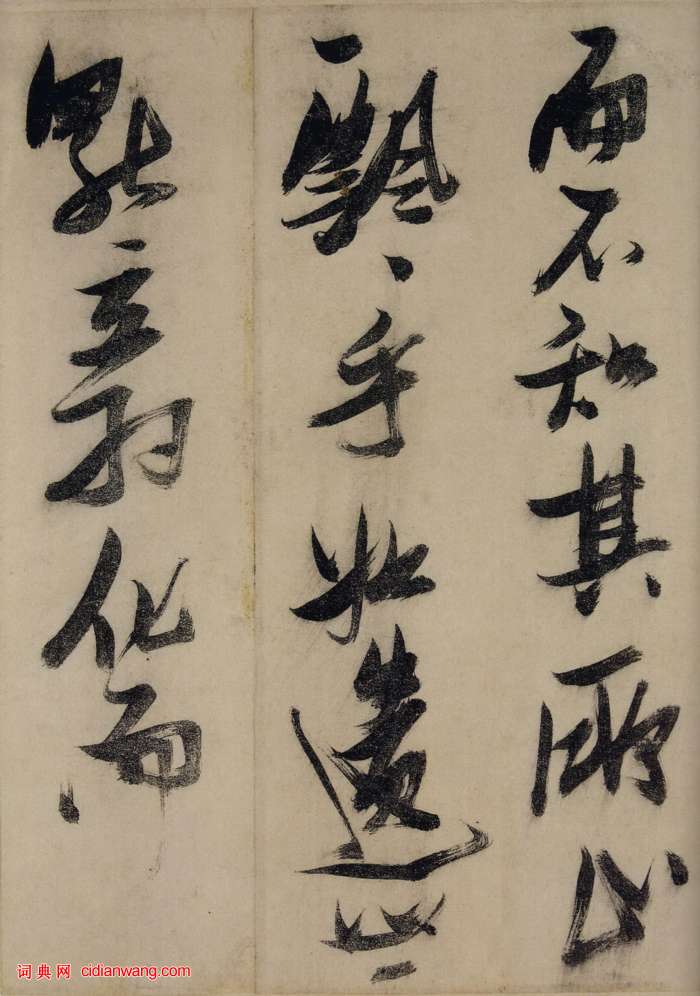 而不知其所止
飄〻乎如遺世
獨立羽化而
词典网 cidianwang.com